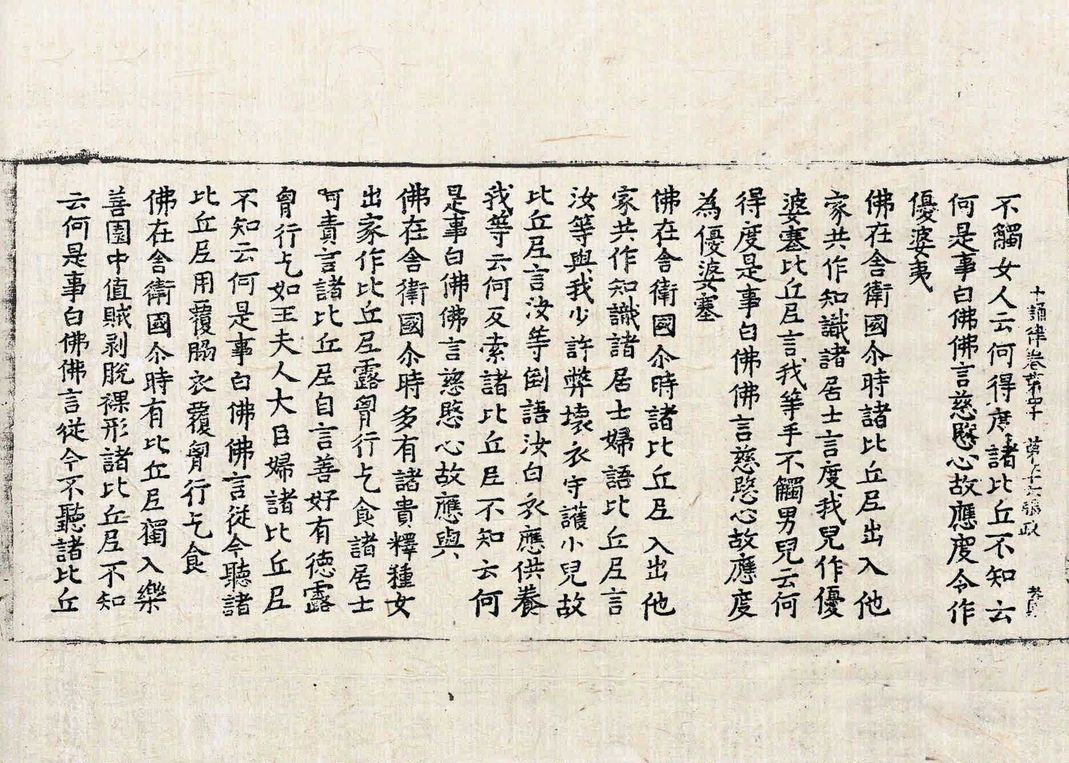 不觸女人云何得度諸比丘不知云
何是事白佛佛言慈愍心故應度令作
優婆夷
佛在舍衛國尒時諸比丘尼出入他
家共作知識諸居士言度我兒作優
婆塞比丘尼言我等手不觸男兒云何
得度是事白佛佛言慈愍心故應度
為優婆塞
佛在舍衛國尒時諸比丘尼入出他
家共作知識諸居士婦語比丘尼言
汝等與我少許弊壞衣守護小兒故
比丘尼言汝等倒語汝白衣應供養
我等云何反索諸比丘尼不知云何
是事白佛佛言慈愍心故應與
佛在舍衛國尒時多有諸貴釋種女
出家作比丘尼露胷行乞食諸居士
呵責言諸比丘尼自言善好有德露
胷行乞如王夫人大臣婦諸比丘尼
不知云何是事白佛佛言從今聽諸
比丘尼用覆腋衣覆胷行乞食
佛在舍衛國尒時有比丘尼獨入樂
善園中值賊剥脫裸形諸比丘尼不知
云何是事白佛佛言從今不聽諸比丘
十誦律卷第四十